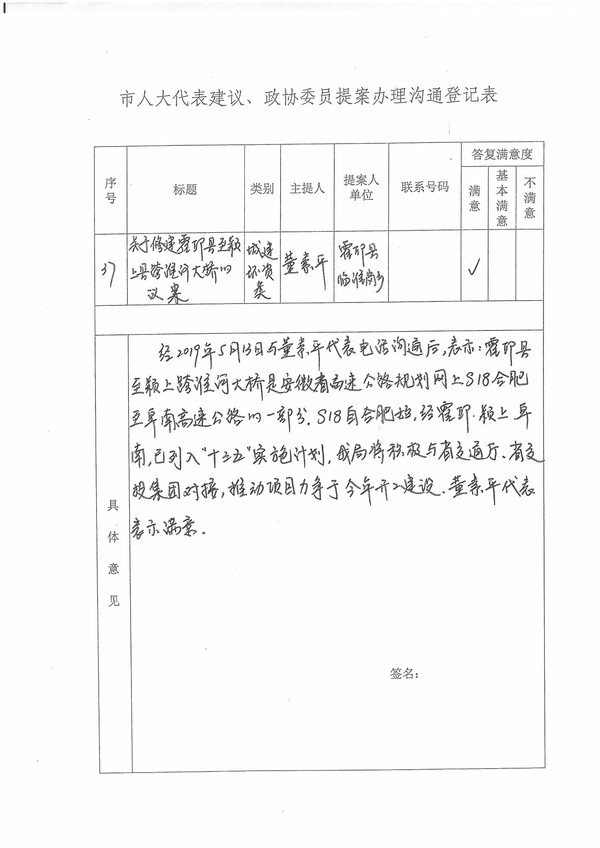 市人大代表建议、政协委员提案办理沟通登记表
序号 标题 类别 主提人 提案人单位 联系号码 答复满意度
满意 基本满意 不满意
37 关于修建霍邱县至颍上县跨淮河大桥的议案 城建环资类 董素平 霍邱县临淮岗乡 ✓
具体意见
经2019年5月13日与董素平代表电话沟通后,表示:霍邱县
至颍上跨淮河大桥是安徽省高速公路规划网上S18合肥
至阜南高速公路的一部分,S18自合肥起,经霍邱、颍上、阜
南,已列入"十三五"实施计划,我局将积极与省交通厅、省交
投集团对接,推动项目力争于今年开工建设.董素平代表
表示满意.
签名: